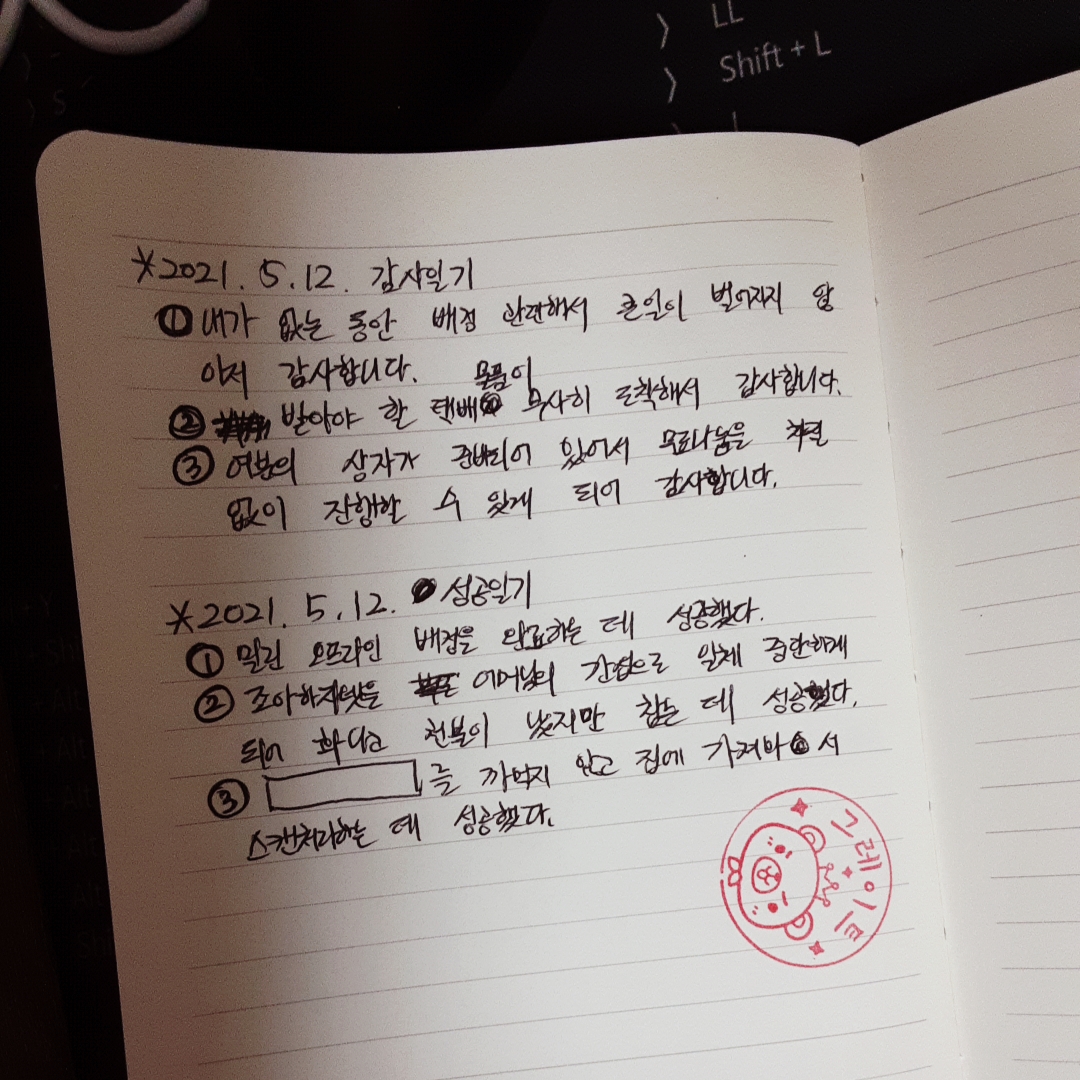 LL
Shift + L
*2021. 5. 12. 감사일기
① 내가 없는 동안 배점 관련해서 큰일이 벌어지지 않
아서 감사합니다.
물품이
② 받아야 할 택배 무사히 도착해서 감사합니다.
③ 여분의 상자가 준비되어 있어서 무료나눔을 차질
없이 진행할 수 있게 되어 감사합니다.
*2021. 5. 12. 성공일기
① 밀린 오프라인 배점을 완료하는 데 성공했다.
② 어머님의 간섭으로 일체 중단하게
되어 화나고 천불이 났지만 참는 데 성공했다.
③ 를 까먹지 않고 집에 가져와서
스캔처리하는 데 성공했다.
그레이트